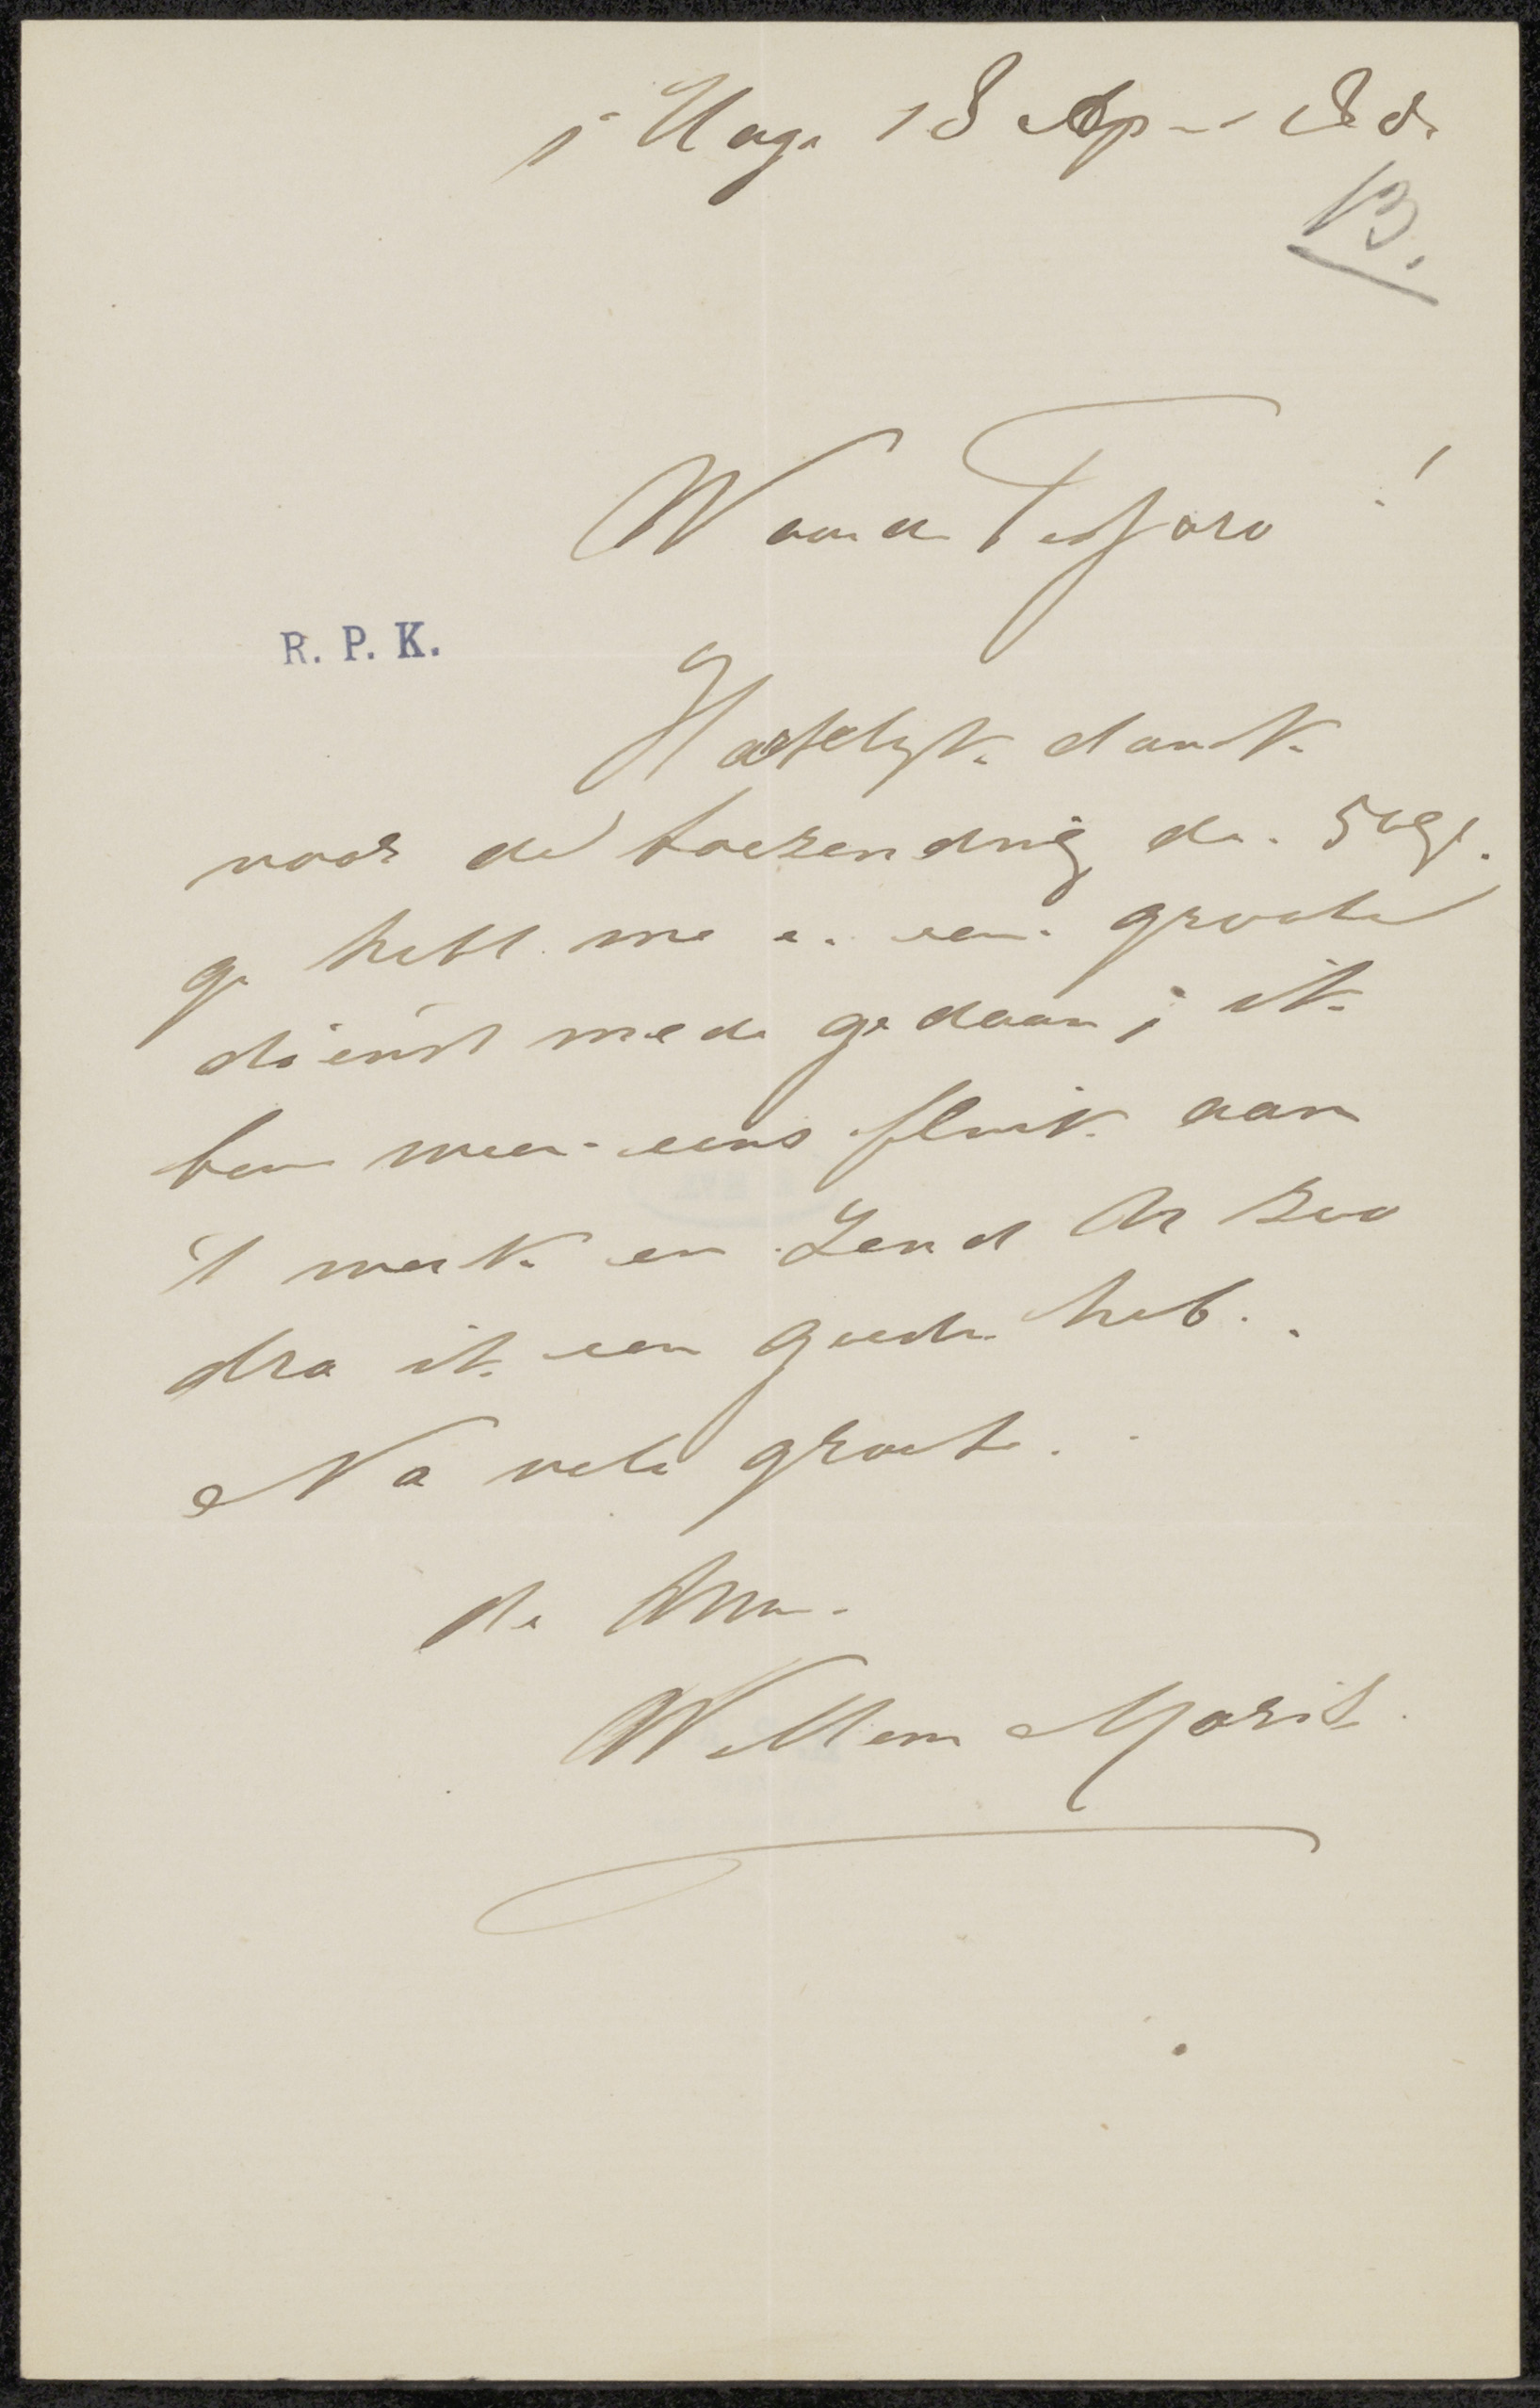 s' Hage 18 Apr 188
13.
Waarde Tessaro!
R. P. K.
Hartelijk dank
voor de toezending de. 50 gl.
ge hebt me er een groote
dienst mede gedaan; ik
ben weer eens flink aan
't werk en zend Ar zoo
dra ik een goede heb.
Na vele groete.
de Uwe
Willem Maris